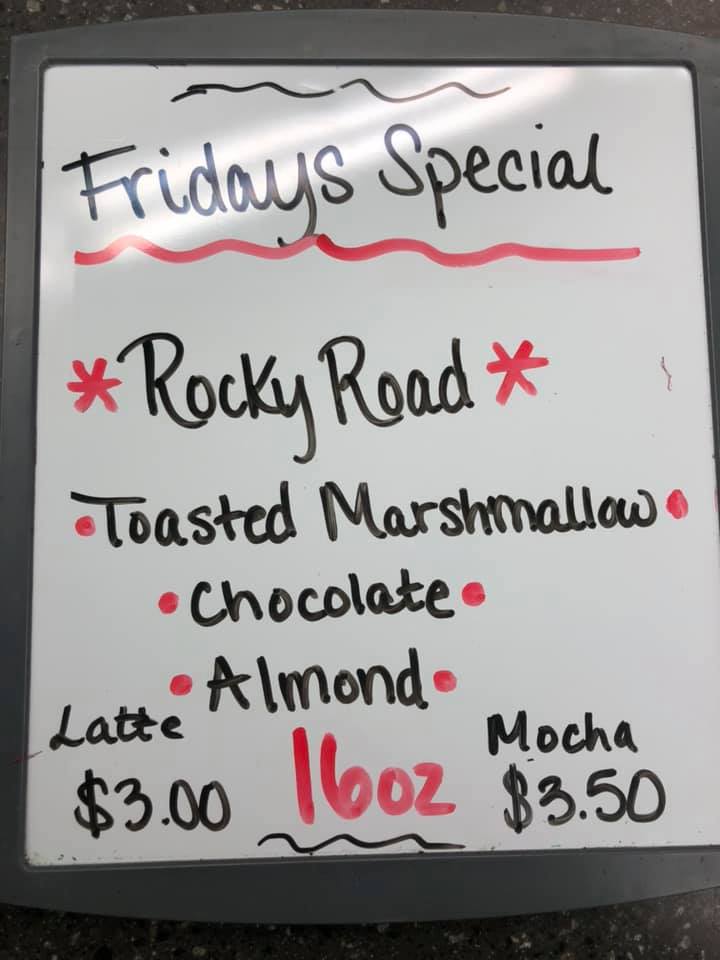 Fridays Special
* Rocky Road *
• Toasted Marshmallow •
• Chocolate •
• Almond •
Latte
$3.00
16oz
Mocha
$3.50